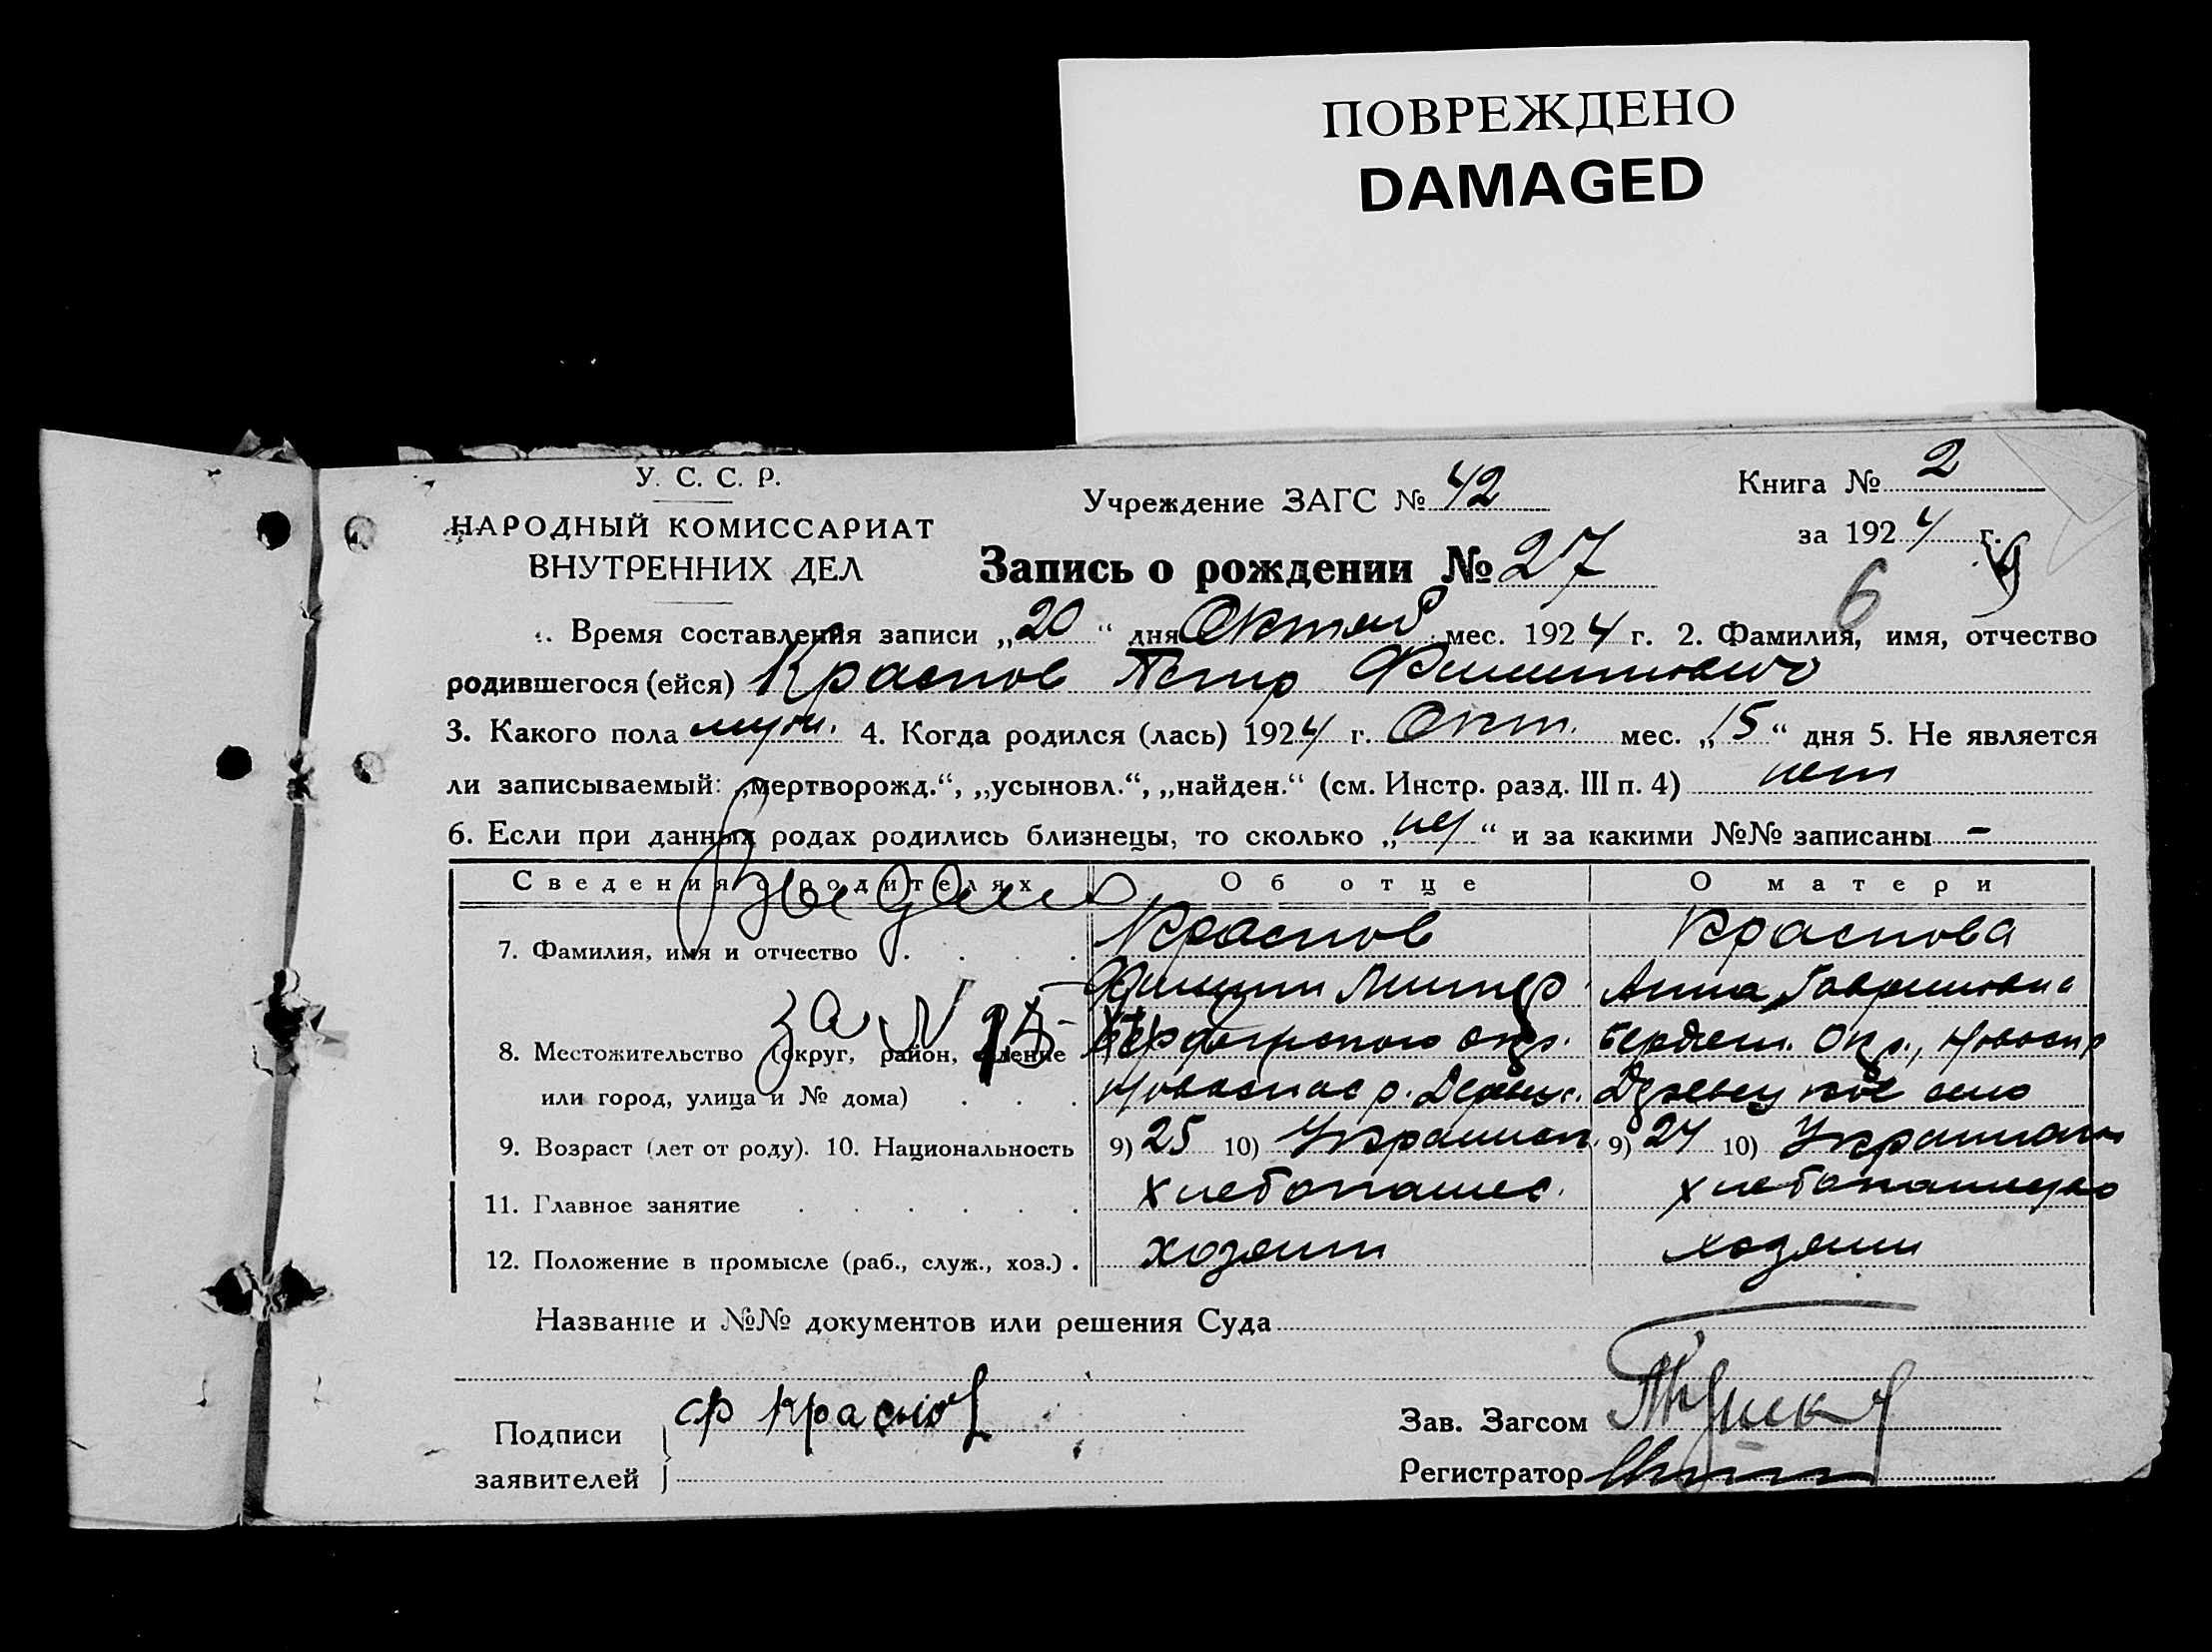 ПОВРЕЖДЕНО
DAMAGED
У. С. С. Р.
НАРОДНЫЙ КОМИССАРИАТ
ВНУТРЕННИХ ДЕЛ
Учреждение ЗАГС № 42
Книга № 2
за 1924 г.
Запись о рождении № 27
6
Время составления записи „20“ дня Октяб мес. 1924 г. 2. Фамилия, имя, отчество
родившегося (ейся) Краснов Петр Филиппович
3. Какого пола муж. 4. Когда родился (лась) 1924 г. Окт. мес. „15“ дня 5. Не является
ли записываемый: „мертворожд.“, „усыновл.“, „найден.“ (см. Инстр. разд. III п. 4) нет
6. Если при данных родах родились близнецы, то сколько „нет“ и за какими №№ записаны -
Сведения о родителях Об отце О матери
7. Фамилия, имя и отчество Краснов Краснова
Филипп Анна Гавриловна
за №
8. Местожительство (округ, район, селение окр. Бердян. Окр.,
или город, улица и № дома) Новоспас р. село
9. Возраст (лет от роду). 10. Национальность 9) 25 10) Украинец 9) 24 10)
11. Главное занятие хлебопашес.
12. Положение в промысле (раб., служ., хоз.) хозяин хозяин
Название и №№ документов или решения Суда
Подписи заявителей Ф Краснов
Зав. Загсом
Регистратор